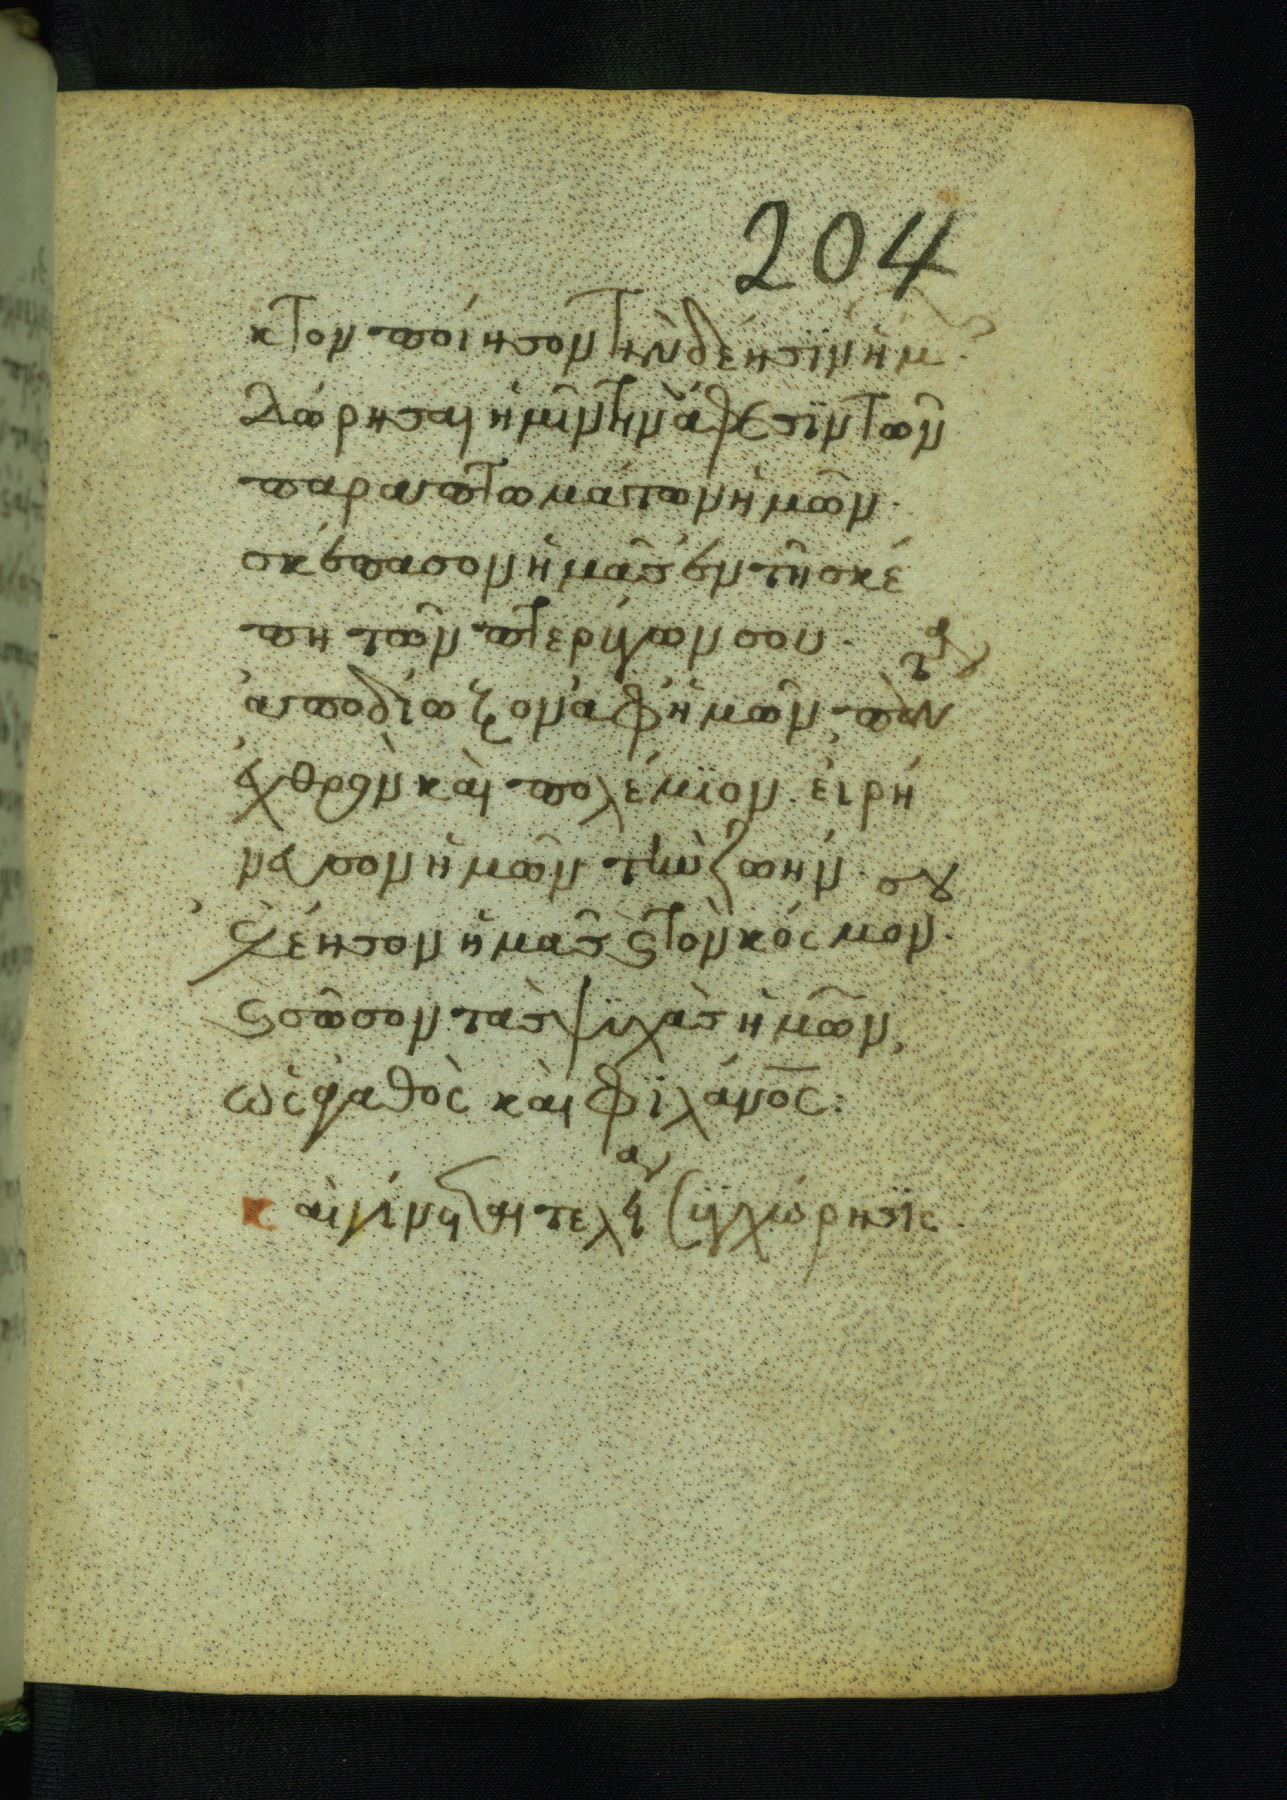 204
κτον ποίησον τὴν δέησϊν ἡμῶν·
δώρησαι ἡμῖν τὴν ἄφεσϊν τῶν
παραπτωμάτων ἡμῶν·
σκέπασον ἡμᾶς ἐν τῆ σκέ
πη τῶν πτερύγων σου·
ἀποδίωξον ἀφ ἡμῶν πάντα
ἐχθρὸν καὶ πολέμϊον· εἰρή
νευσον ἡμῶν τὴν ζωήν· κε
ἐλέησον ἡμᾶς καὶ τὸν κόσμον·
καὶ σῶσον τὰς ψϋχὰς ἡμῶν,
ὡς ἀγαθὸς καὶ φϊλάνος:
καὶ γίνεται τελεία συγχώρησϊς